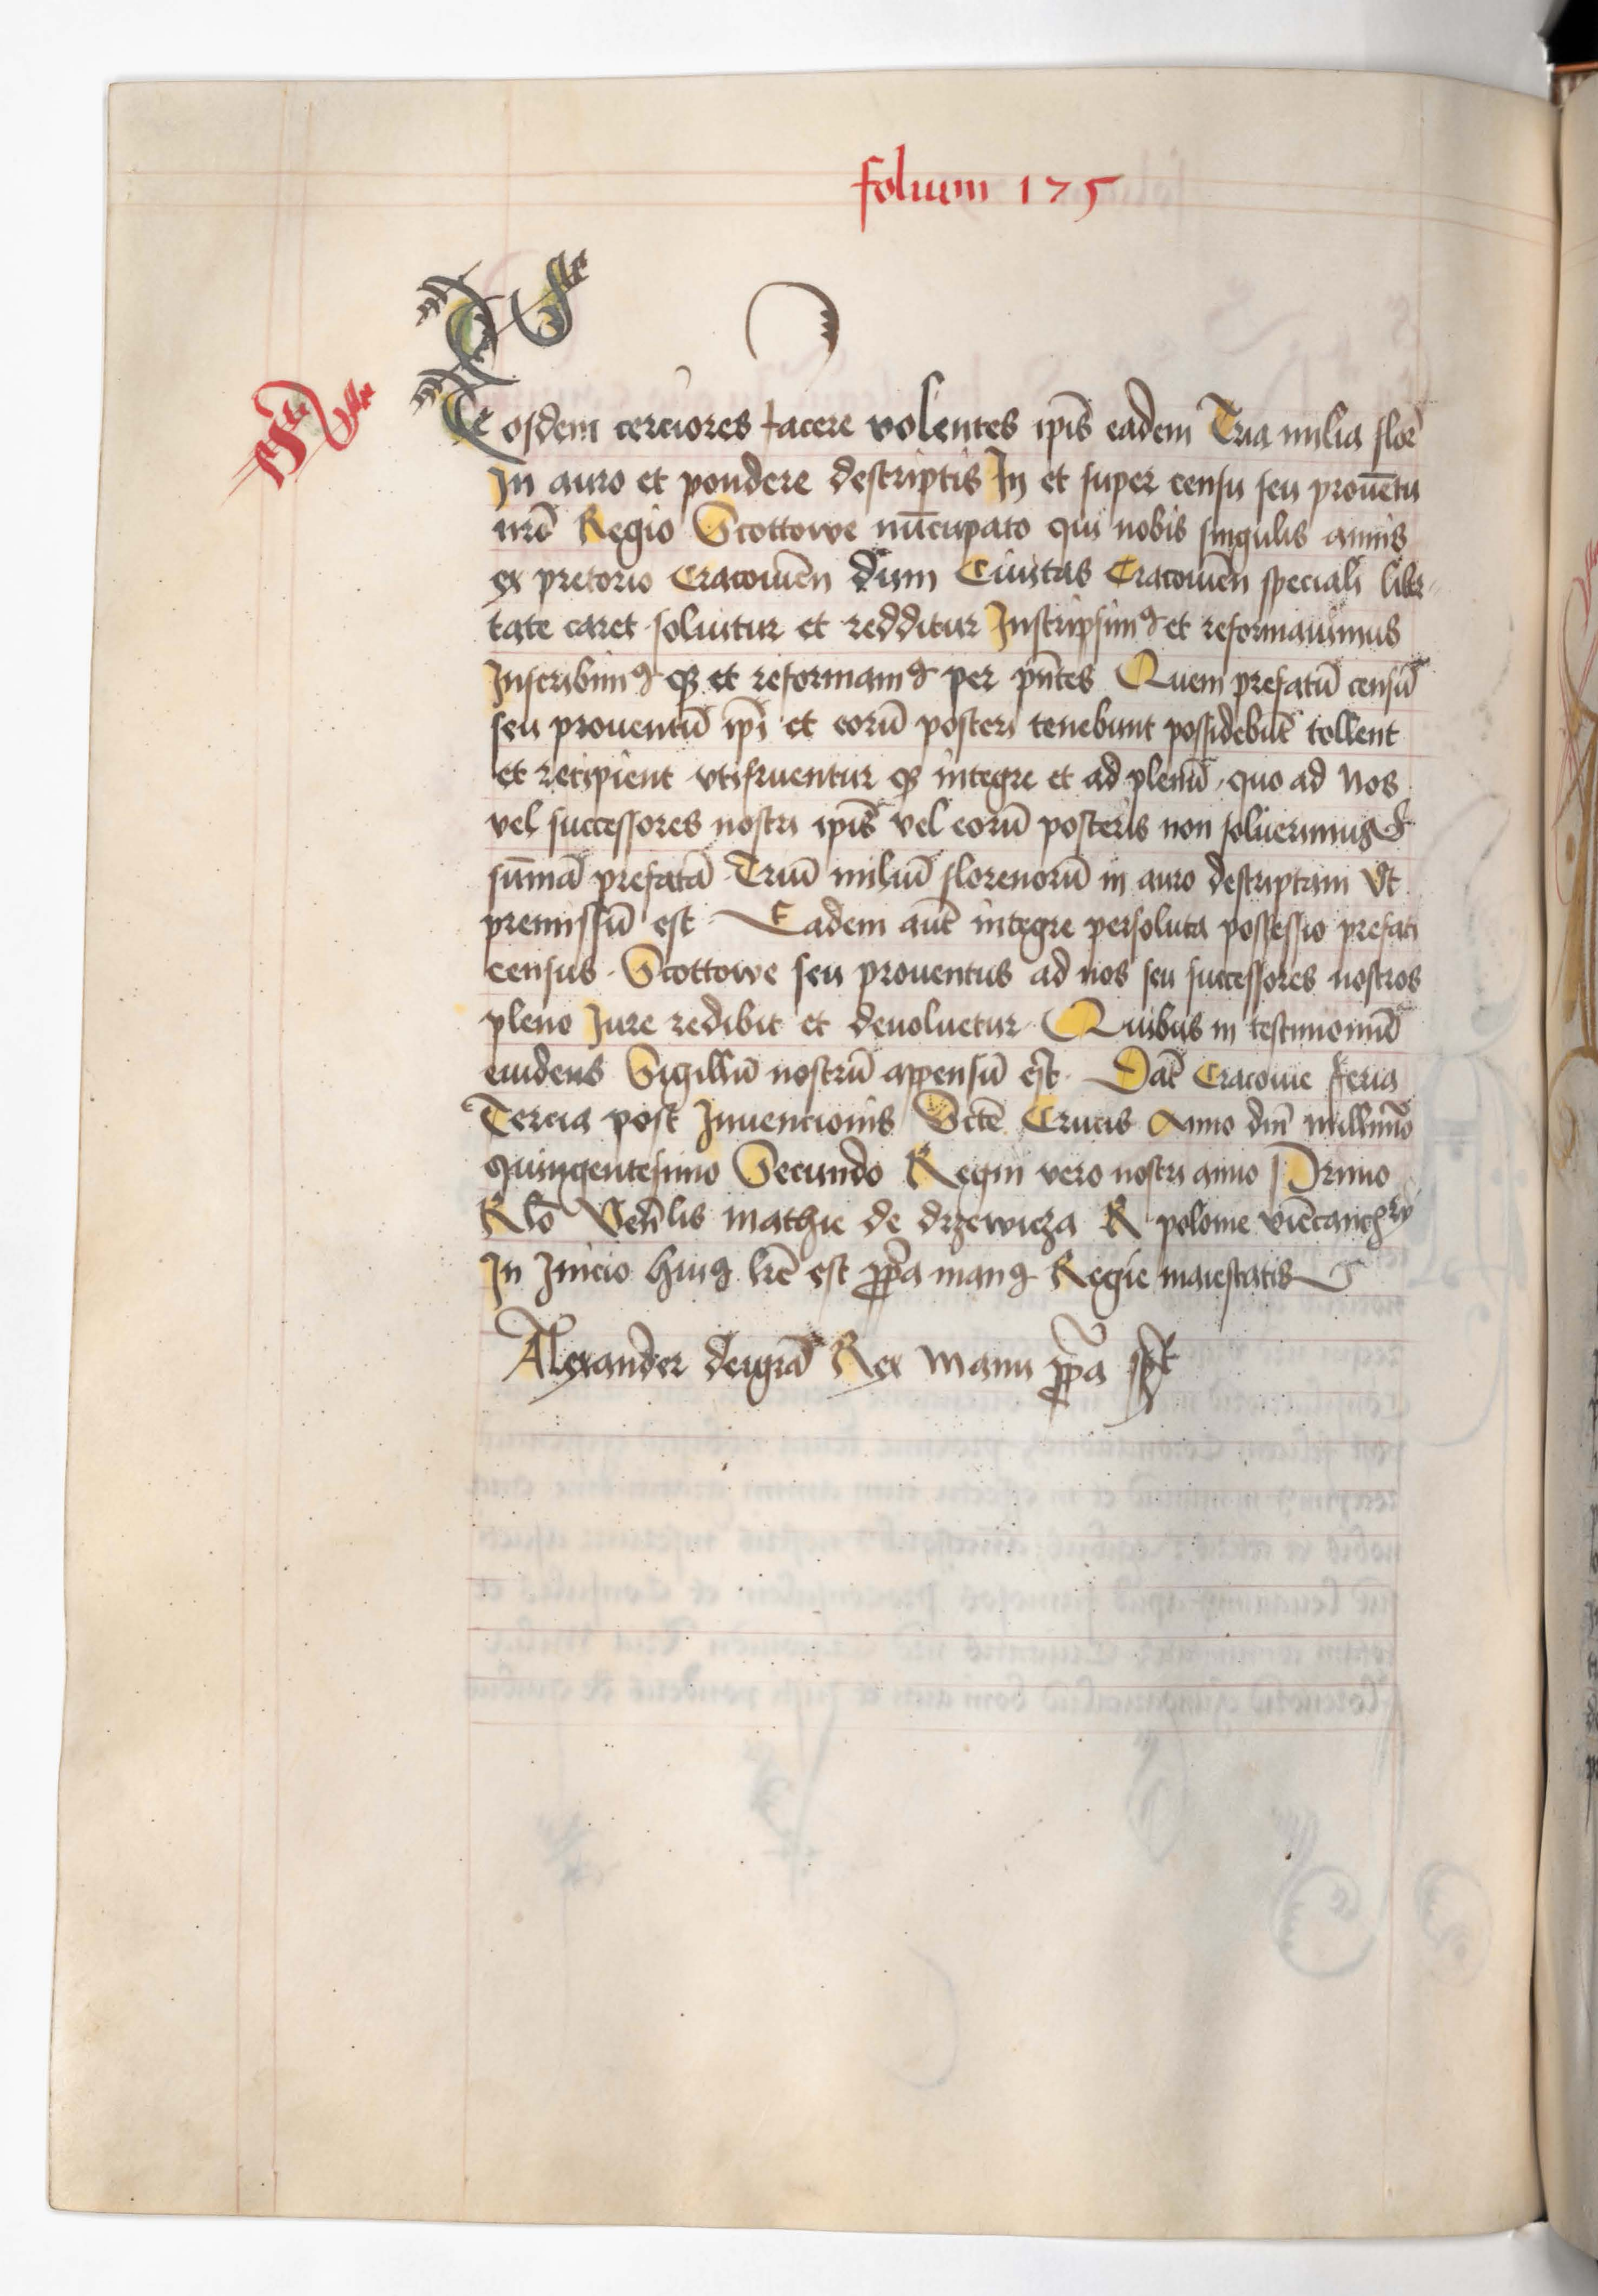 folium 175
Eosdem cerciores facere volentes ip̄is eadem Tria milia floꝛ̄
In auro et pondere descriptis In et super censu seu prouētu
nr̄o Regio Scottowe nūcupato qui nobis singulis annis
ex pretorio Cracouien̄ dum Ciuitas Cracouien̄ speciali liber
tate caret soluitur et redditur Inscripsimꝰ et reformauimus
Inscribimꝰ qꝫ et reformamꝰ per pn̄tes Quem prefatū censū
seu prouentū ip̄i et eorū posteri tenebunt possidebūt tollent
et recipient vtifruentur qꝫ integre et ad plenū quo ad Nos
vel successores nostri ip̄is vel eorū posteris non soluerimus
sūmā prefatā Triū miliū florenorū in auro descriptam Vt
premissū est Eadem aūt integre persoluta possessio prefati
census Scottowe seu prouentus ad nos seu successores nostros
pleno Iure redibit et deuoluetur Quibus in testimoniū
euidens Sigillū nostrū appensū est Dat̄ Cracouie feria
Tercia post Inuencionis Sctē Crucis Anno dn̄i millīmo
quingentesimo Secundo Regni vero nostri anno Primo
Rlō Ven̄lis mathie de drzewicza R polonie vicecanc̄rij
In Inicio huiꝰ lr̄e est ꝓp̄a manꝰ Regie maiestatis
Alexander dei gr̄a Rex Manu ꝓp̄a sp̄t